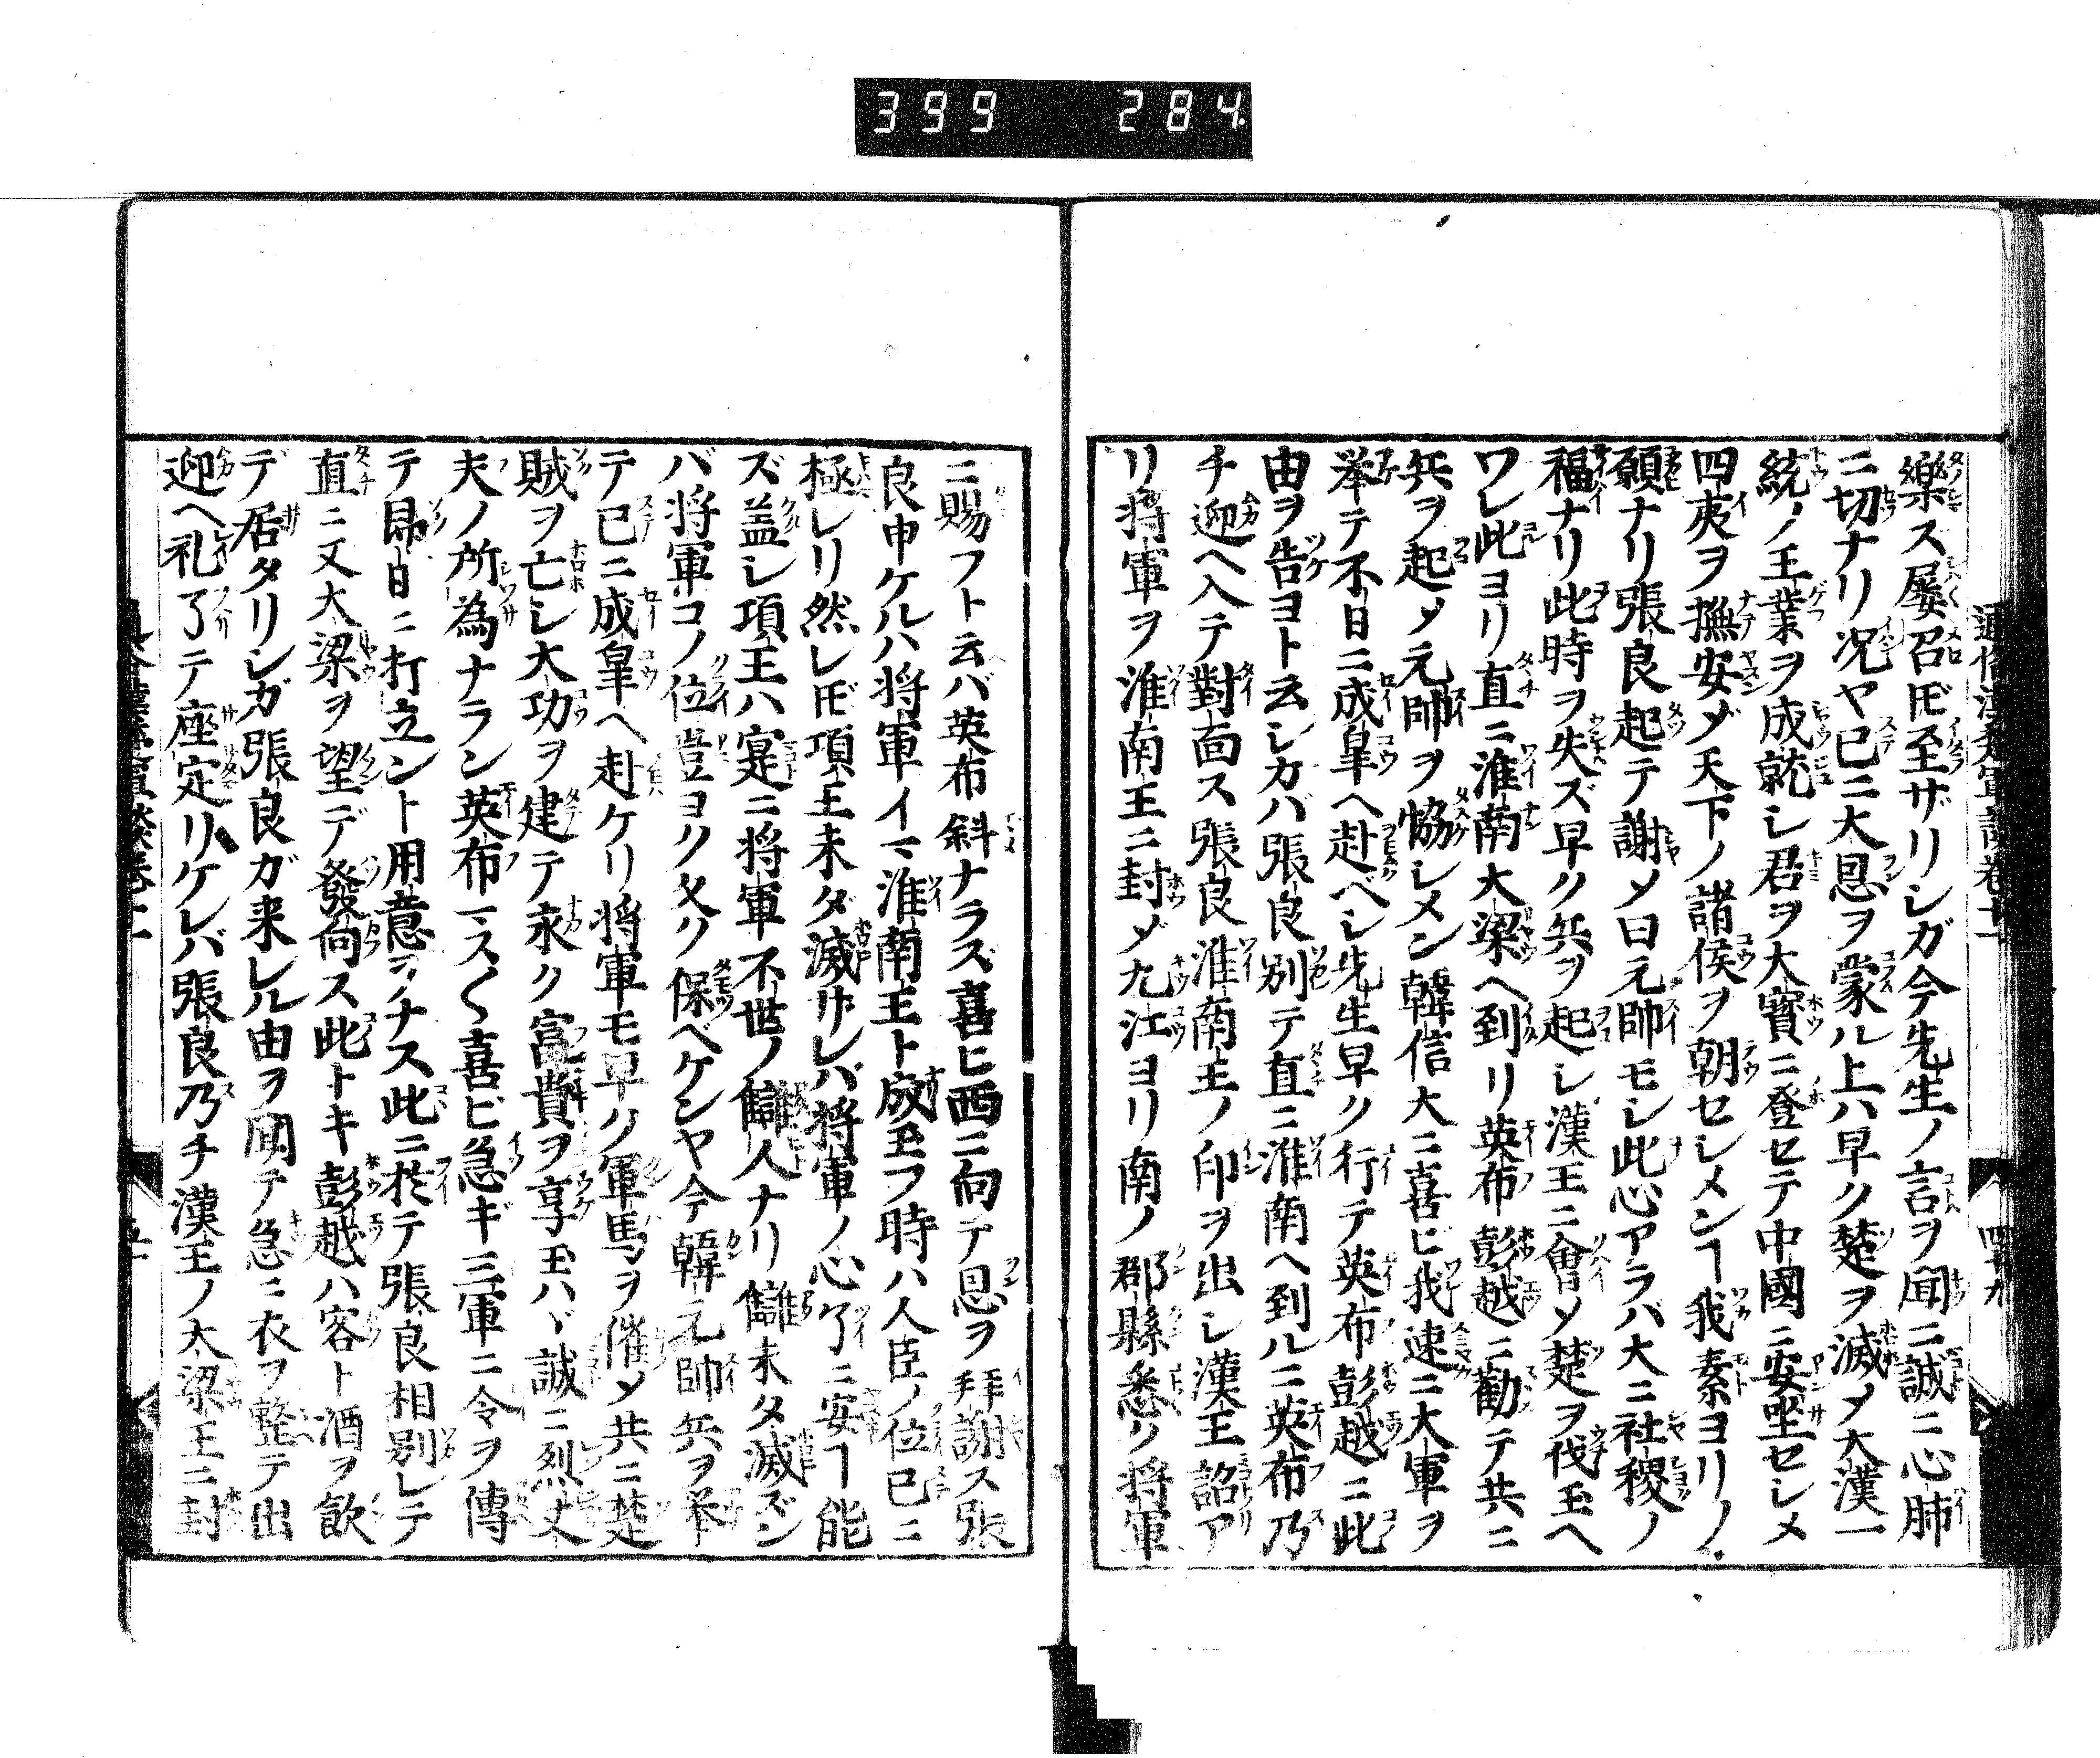 399 284
樂ス屡召𪜈至ザリシガ今先生ノ言ヲ聞ニ誠ニ心肺
ニ切ナリ况ヤ已ニ大恩ヲ蒙ル上ハ早ク楚ヲ滅メ大漢一
統ノ王業ヲ成就シ君ヲ大寳ニ登セテ中國ニ安坐セシメ
四夷ヲ撫安メ天下ノ諸侯ヲ朝セシメンヿ我素ヨリノ
願ナリ張良起テ謝メ曰元帥モシ此心アラハ大ニ社稷ノ
福ナリ此時ヲ失ズ早ク兵ヲ起シ漢王ニ會メ楚ヲ伐玉ヘ
ワレ此ヨリ直ニ淮南大梁ヘ到リ英布彭越ニ勸テ共ニ
兵ヲ起メ元帥ヲ恊シメン韓信大ニ喜ヒ我速ニ大軍ヲ
举テ不日ニ成皐ヘ赴ベシ先生早ク行テ英布彭越ニ此
由ヲ告ヨト云シカバ張良別テ直ニ淮南ヘ到ルニ英布乃
チ迎ヘ入テ對面ス張良淮南王ノ印ヲ出シ漢王詔ア
リ将軍ヲ淮南王ニ封メ九江ヨリ南ノ郡縣悉ク将軍
ニ賜フト云バ英布斜ナラズ喜ヒ西ニ向テ恩ヲ拜謝ス張
良申ケルハ将軍イマ淮南王ト成玉フ時ハ人臣ノ位已ニ
極レリ然レ𪜈項王未ダ滅ザレバ将軍ノ心了ニ安ヿ能
ズ盖シ項王ハ寔ニ将軍不世ノ讎人ナリ讎未タ滅ズン
バ将軍コノ位豈ヨク久ク保ベケンヤ今韓元帥兵ヲ举
テ已ニ成皐ヘ赴ケリ将軍モ早ク軍馬ヲ催メ共ニ楚
賊ヲ亡シ大功ヲ建テ永ク富貴ヲ享玉ハヾ誠ニ烈丈
夫ノ所為ナラン英布マス〱喜ビ急ギ三軍ニ令ヲ傳
テ昂日ニ打立ント用意ヲナス此ニ於テ張良相别レテ
直ニ又大梁ヲ望デ發向ス此トキ彭越ハ客ト酒ヲ飮
デ居タリシガ張良ガ来レル由ヲ聞テ急ニ衣ヲ整テ出
迎ヘ礼了テ座定リケレバ張良乃チ漢王ノ大梁王ニ封